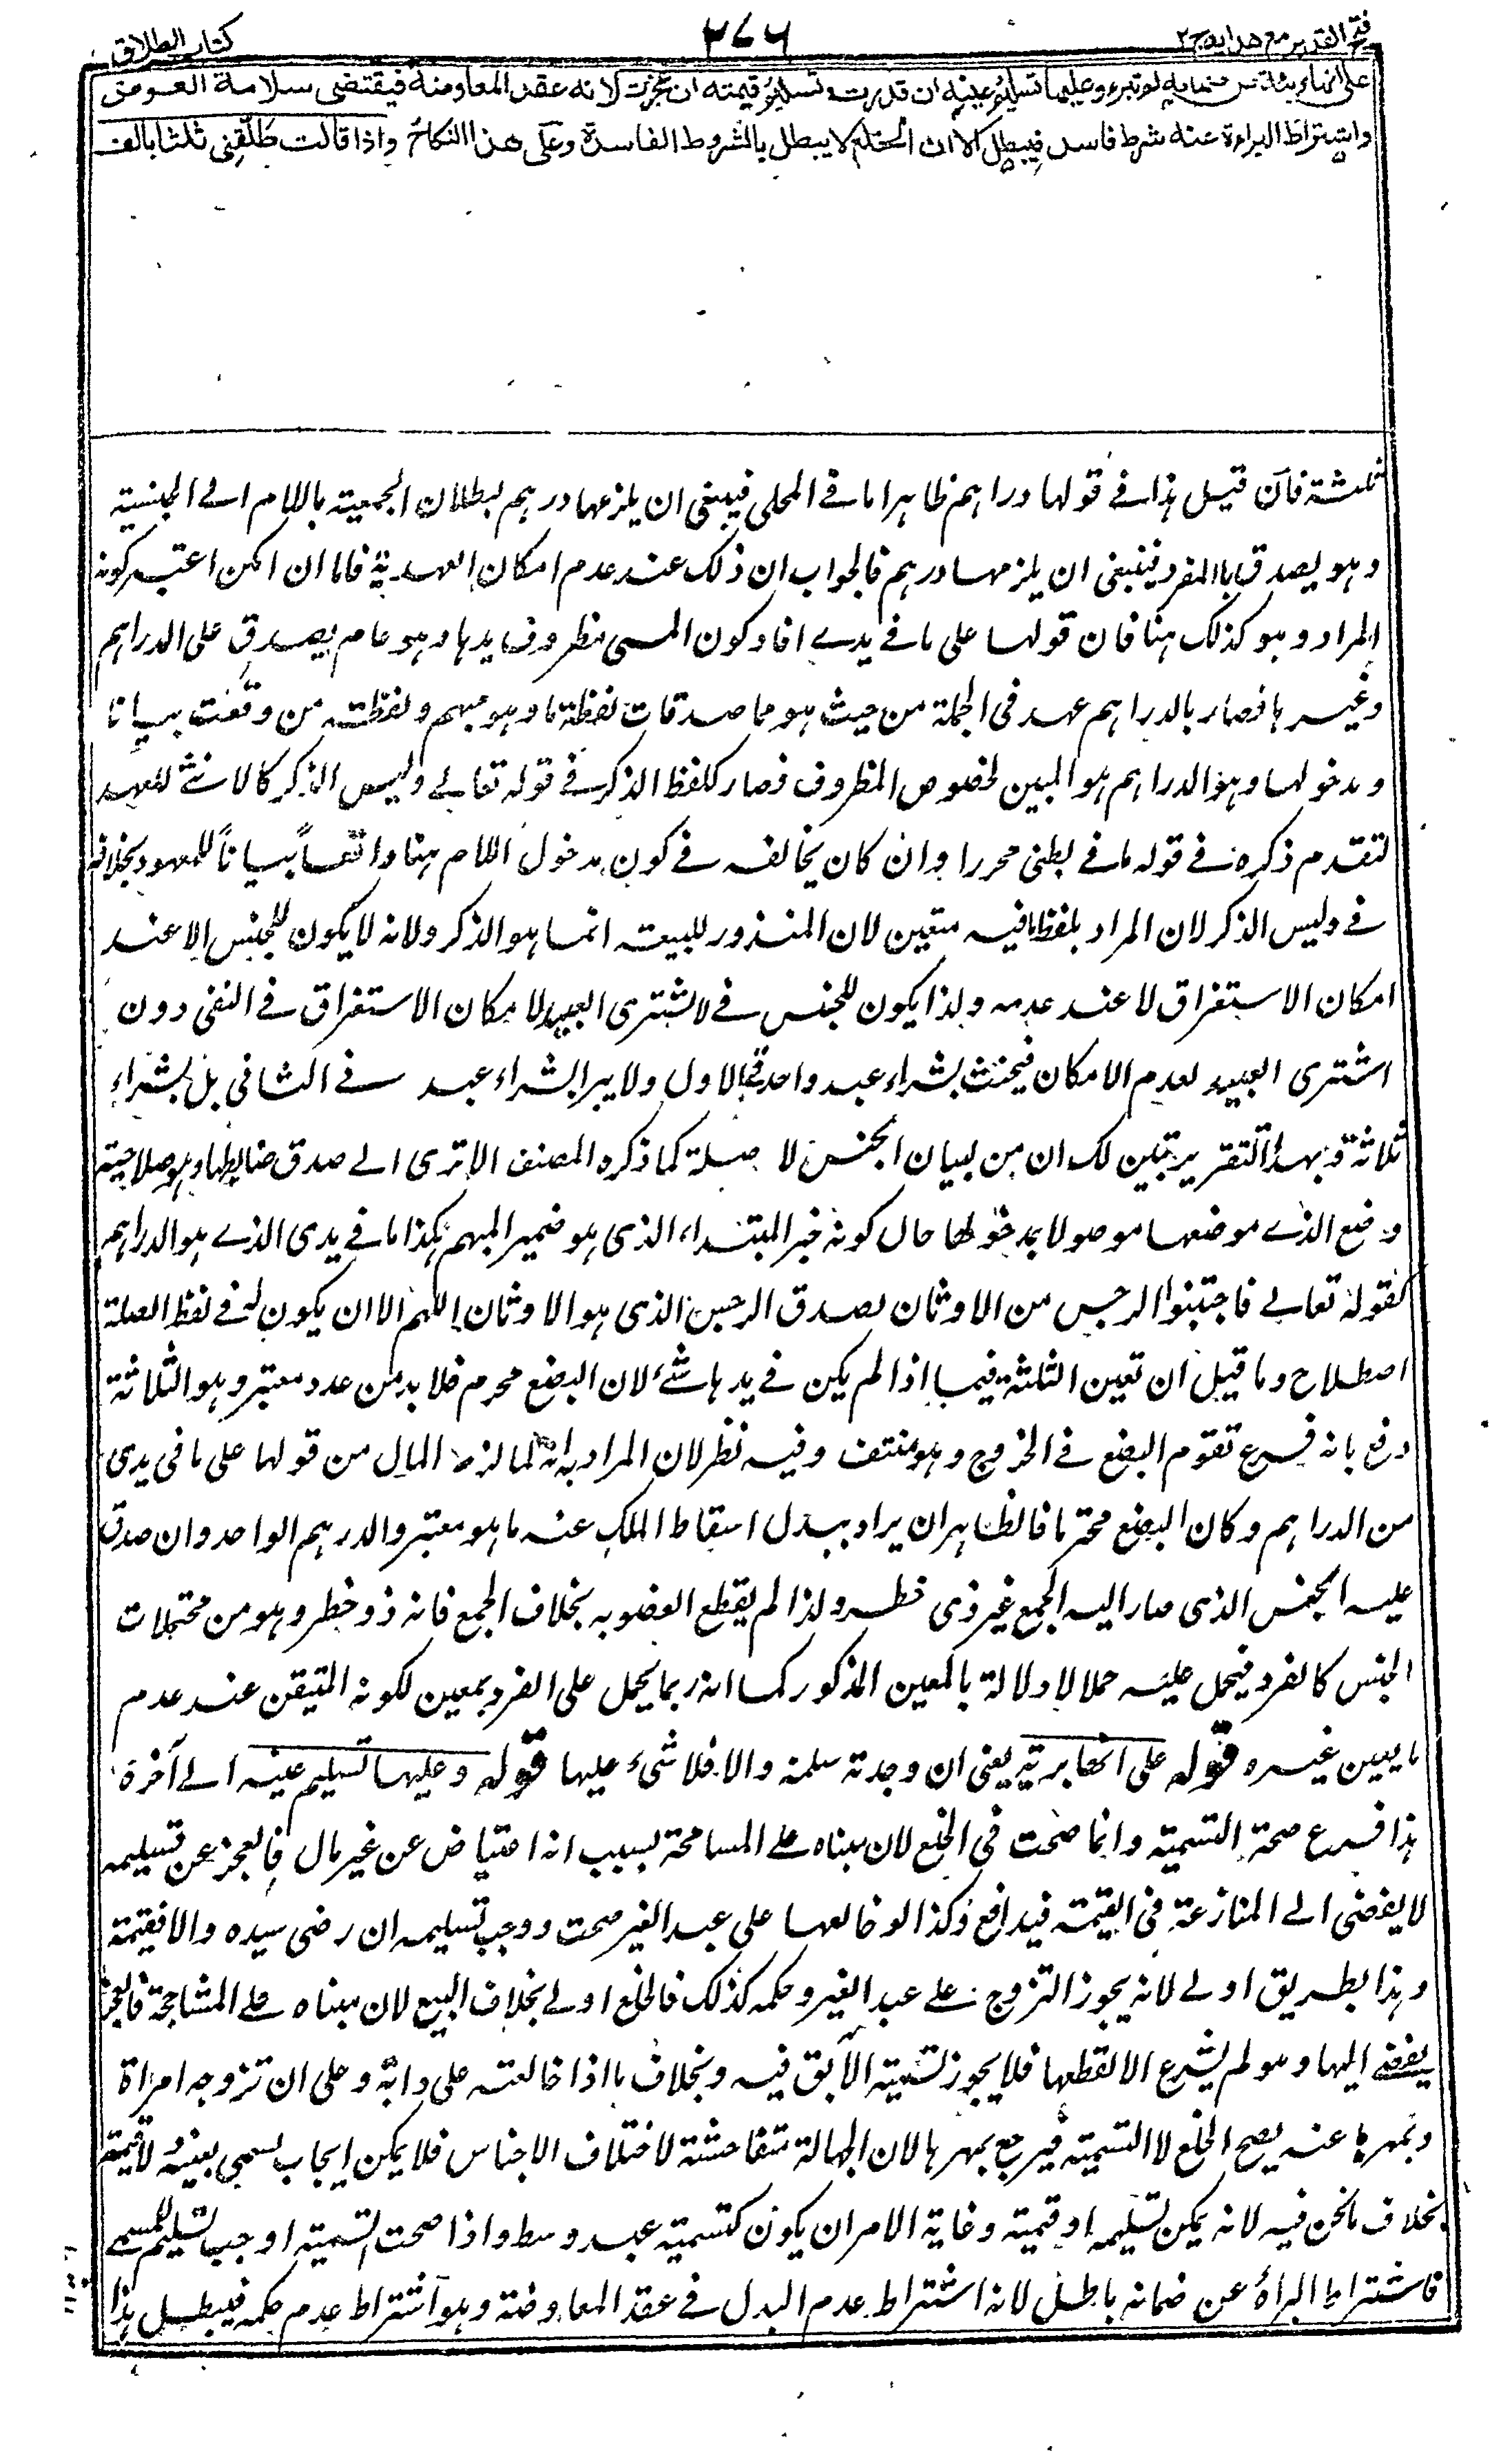 فتح القدير مع هدايه ج ٢
٣٧٦
كتاب الطلاق
على انها بريئة من ضمانه لم تبرء وعليها تسليم عينه ان قدرت وتسليم قيمته ان عجزت لانه عقد المعاوضة فيقتضى سلامة العوض
واشتراط البراءة عنه شرط فاسد فيبطل الا ان الخلع لا يبطل بالشروط الفاسدة وعلى هذا النكاح واذا قالت طلقنى ثلثا بالف
ثلثة فان قيل هذا فے قولها دراهم ظاهر اما فے المحلى فينبغى ان يلزمها درهم لبطلان الجمعية باللام الے الجنسية
وهو يصدق بالمفرد فينبغى ان يلزمها درهم فالجواب ان ذلك عند عدم امكان العهدية فاما ان امكن اعتبر كونه
المراد وهو كذلك هنا فان قولها على ما فے يدے افاد كون المسمى مظروف يدها وهو عام يصدق على الدراهم
وغيرها فصار بالدراهم عهد فى الجملة من حيث هو مما صدقات لفظة ما وهو مبهم ولفظة من وقعت بيانا
ومدخولها وهو الدراهم هو المبين لخصوص المظروف فصار كلفظ الذكر فے قوله تعالے وليس الذكر كالانثے للعهد
لتقدم ذكره فے قوله ما فے بطنى محررا وان كان يخالفه فے كون مدخول اللام هنا واقعاً بياناً للمعهود بخلافه
فے وليس الذكر لان المراد بلفظ ما فيه متعين لان المنذور للبيعة انما هو الذكر ولانه لا يكون للجنس الا عند
امكان الاستغراق لا عند عدمه ولذا يكون للجنس فے لا يشترى العبيد لامكان الاستغراق فے النفى دون
اشترى العبيد لعدم الامكان فيحنث بشراء عبد واحد فے الاول ولا يبر بشراء عبد فے الثانى بل بشراء
ثلاثة وبهذا التقرير تبين لك ان من لبيان الجنس لا صلة كما ذكره المصنف الا ترى الے صدق ضابطها وهو صلاحية
وضع الذے موضعها موصولا بمدخولها حال كونه خبر المبتداء الذى هو ضمير المبهم هكذا ما فے يدى الذے هو الدراهم
كقوله تعالے فاجتنبوا الرجس من الاوثان يصدق الرجس الذى هو الاوثان اللهم الا ان يكون له فے لفظ الصلة
اصطلاح وما قيل ان تعين الثلثة فيما اذا لم يكن فے يدها شئ لان البضع محرم فلابد من عدد معتبر وهو الثلاثة
دفع بانه فرع تقوم البضع فے الخروج وهو منتف وفيه نظر لان المراد به انه لما لزم المال من قولها على ما فى يدى
من الدراهم وكان البضع محترما فالظاهر ان يراد ببدل اسقاط الملك عنه ما هو معتبر والدرهم الواحد وان صدق
عليه الجنس الذى صار اليه الجمع غير ذى خطر ولذا لم يقطع العضو به بخلاف الجمع فانه ذو خطر وهو من محتملات
الجنس كالفرد فيحمل عليه حملا لا دلالة بالمعين المذكور كما انه ربما يحمل على الفرد بمعين لكونه المتيقن عند عدم
ما يعين غيره قوله على انها بريئة يعنى ان وجدته سلمته والا فلا شئ عليها قوله وعليها تسليم عينه الے آخره
هذا فرع صحة التسمية وانما صحت فى الخلع لان مبناه على المسامحة بسبب انه اعتياض عن غير مال فالعجز عن تسليمه
لا يفضى الے المنازعة فى القيمة فيدافع وكذا لو خالعها على عبد الغير صحت ووجب تسليمه ان رضى سيده والا فقيمته
وهذا بطريق اولے لانه يجوز التزوج علے عبد الغير وحكمه كذلك فالخلع اولے بخلاف البيع لان مبناه علے المشاحة فالعجز
يفضے اليها وهو لم يشرع الا لقطعها فلا يجوز تسمية الآبق فيه وبخلاف ما اذا خالعته على دابة وعلى ان تزوجه امرأة
وتمهرها عنه يصح الخلع لا التسمية فيرجع بمهرها لان الجهالة متفاحشة لاختلاف الاجناس فلا يمكن ايجاب مسمى بعينه ولا قيمته
بخلاف ما نحن فيه لانه يمكن تسليمه او قيمته وغاية الامر ان يكون كتسمية عبد وسط واذا صحت التسمية اوجب تسليم المسمے
فاشتراط البراءة عن ضمانه باطل لانه اشتراط عدم البدل فے عقد المعاوضة وهو اشتراط عدم حكمه فيبطل هذا